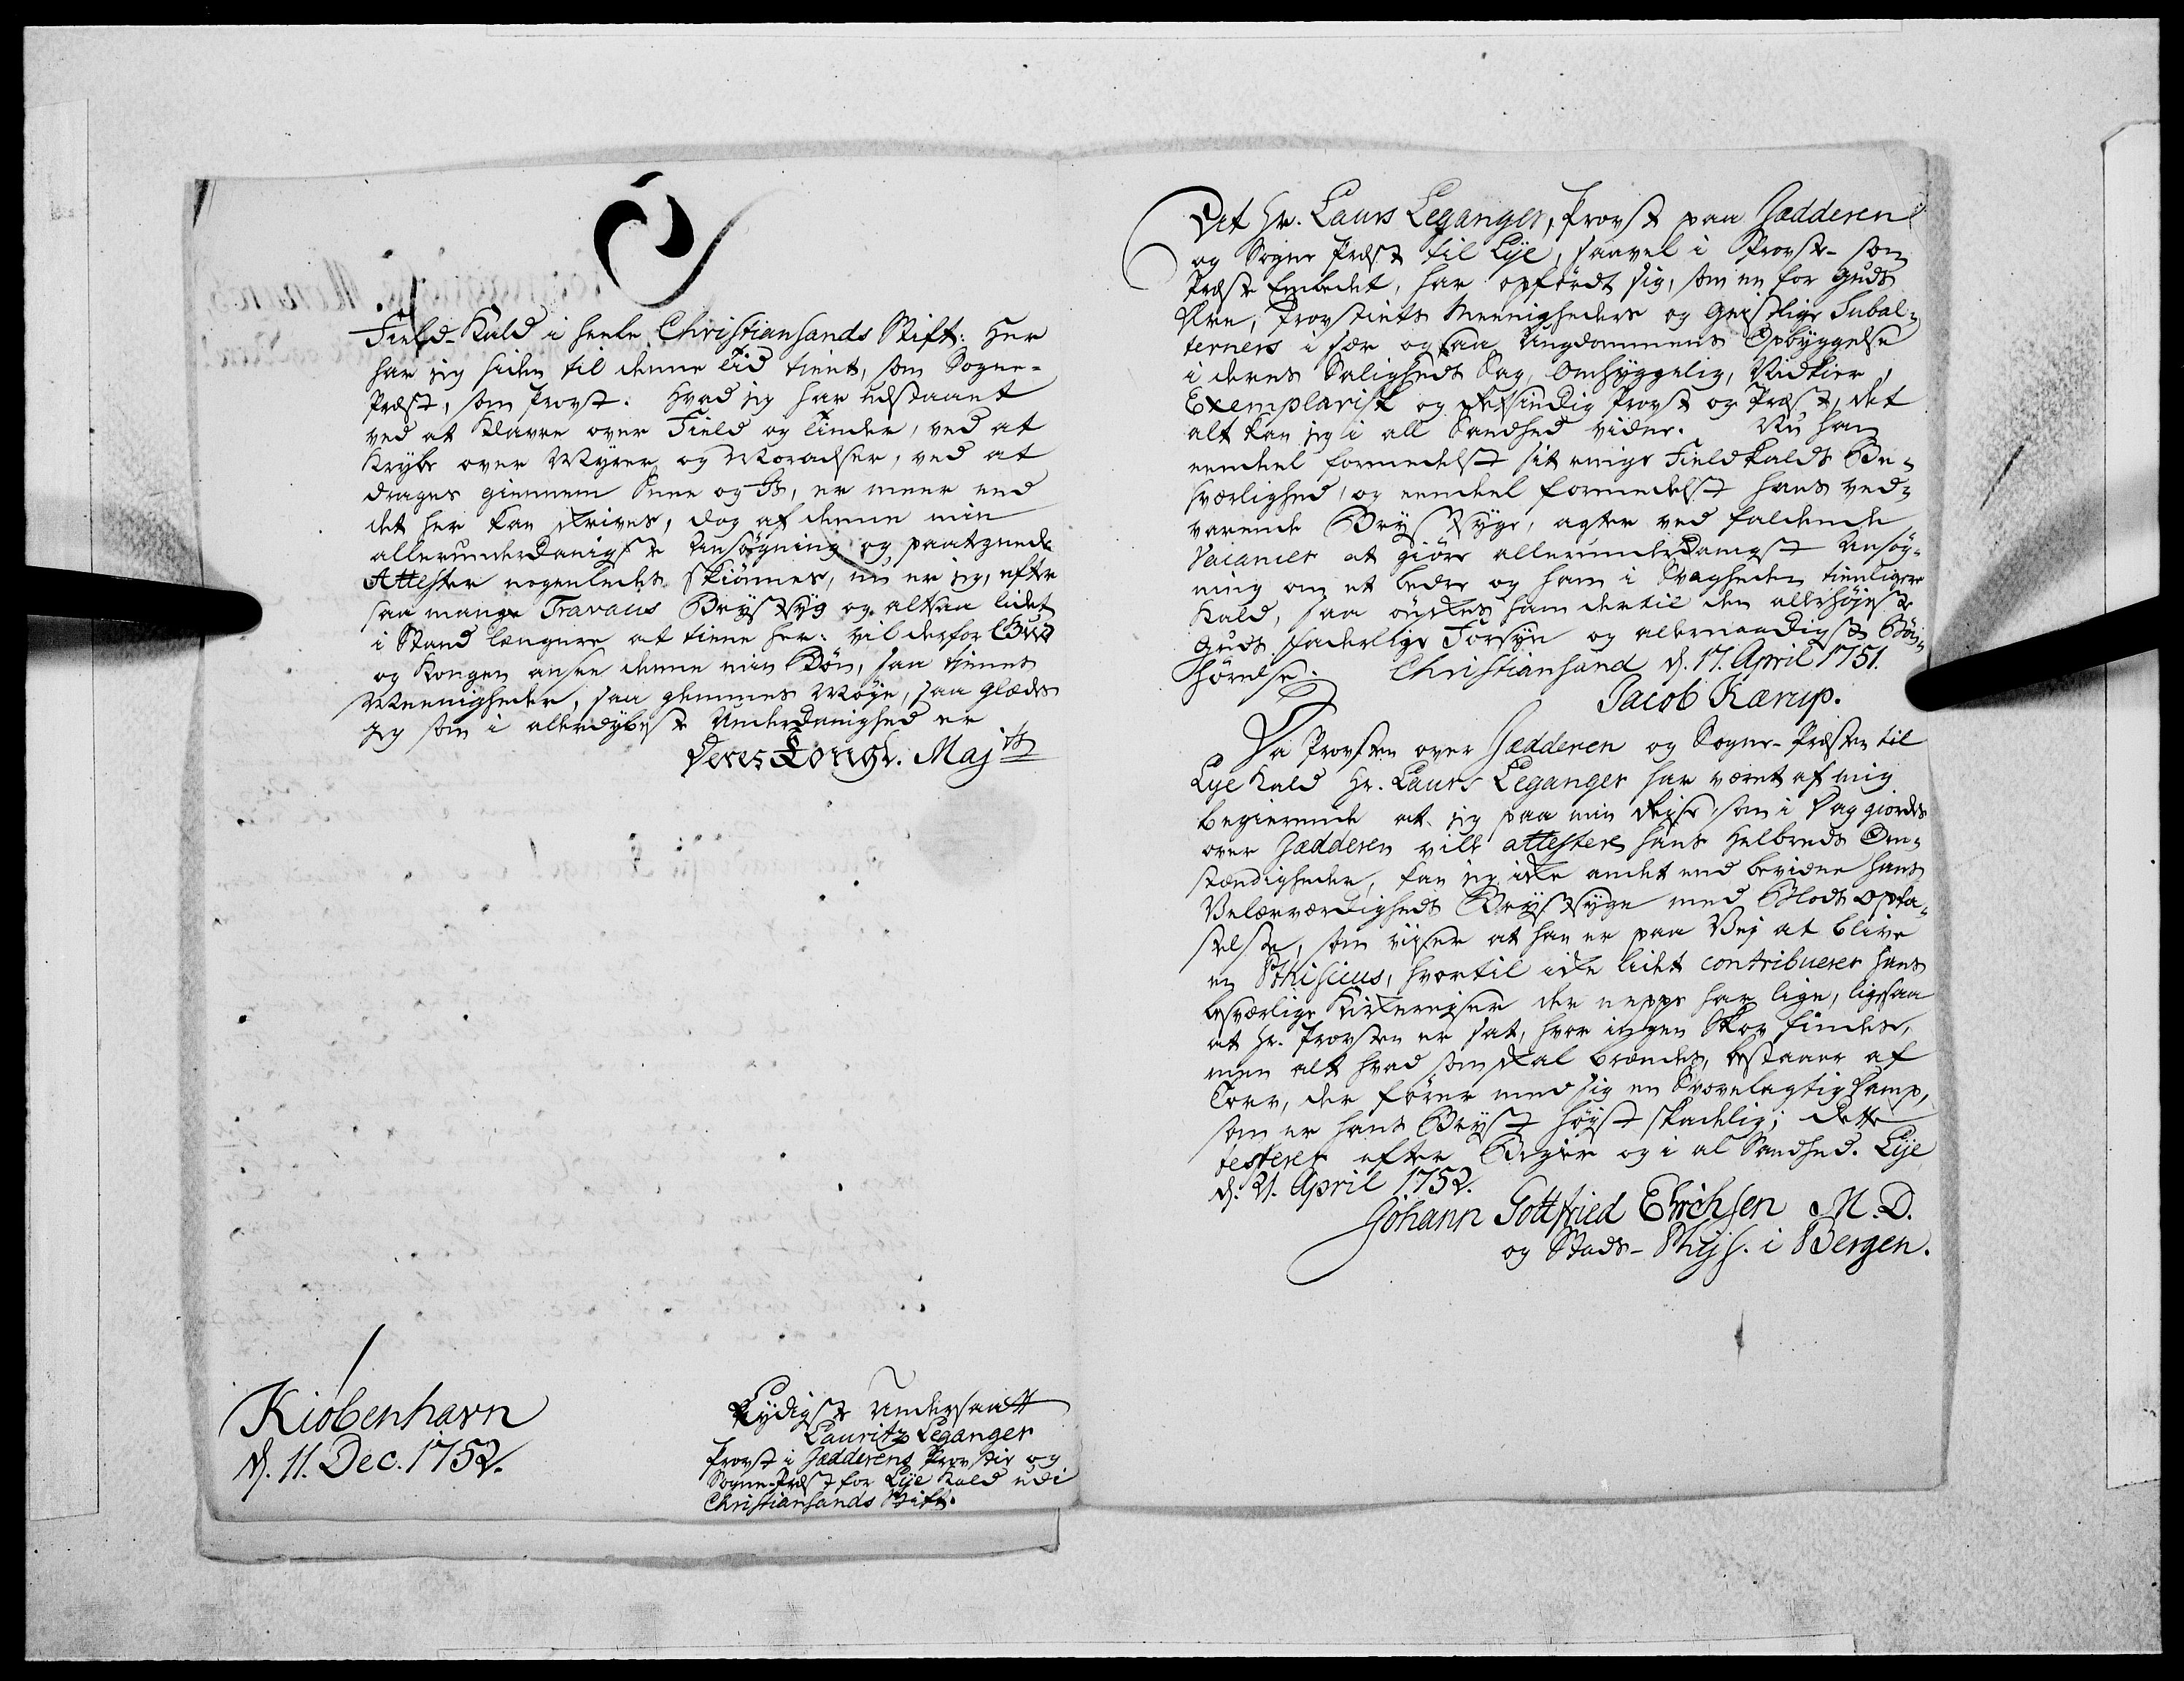 Field-Kald i heele Christiansands Stift: Her
har jeg siden til denne tid tient, som Sogne-
Præst, som Provst. Hvad jeg har udstaaet
ved at klavre over Field og tinder, ved at
krybe over Myrer og Moradser, ved at
drages giennem Snee og Iis, er meer end
det her kan skrives, dog af denne min
allerunderdanigste Ansøgning og paategnede
Attester nogenledes skiønnes, nu er jeg, efter
saa mange Travaus Brystsyg og altsaa lidet
i Stand længere at tiene her: vil derfor Gud
og Kongen ansee denne min Bøn, saa tienes
Meenigheder, saa glemmes Møye, saa glædes
jeg som i allerdybeste Underdanighed er
Deres Kongl. Majts
Kiøbenhavn
d. 11. Dec. 1752.
Lydigste Undersaatt
Lauritz Leganger
Provst i Jædderens Provstie og
Sogne-Præst for Lÿe Kald udi
Christiansands Stift.
At Hr. Laurs Leganger, Provst paa Jædderen
og Sogne Præst til Lÿe, saavel i Provste- som
Præste Embedet, har opfördt sig, som en for Guds
Ære, Provstiets Meenigheders og Geistlige Subal-
terners i sær ogsaa Ungdommens Opbyggelse
i deres Saligheds Sag, Omhyggelig, Nidkier,
Exemplarisk og retsindig Provst og Præst, det
alt kan jeg i all Sandhed vidne. Nu han
eendeel formedelst sit meget Fieldkalds Be-
sværlighed, og eendeel formedelst hans ved-
varende Brystsyge, agter ved faldende
Vacancer at giøre allerunderdanigst Ansøg-
ning om et bedre og ham i Svagheden tienligere
Kald, saa ønskes ham dertil den allerhøjeste
Guds faderlige Forsyn og allernaadigst Bøn-
hørelse. Christiansand d. 17. April 1751.
Jacob Kærup.
Da Provsten over Jædderen og Sogne-Præsten til
Lÿe Kald Hr. Laurs Leganger har været af mig
begierende at jeg paa min Reise som i Dag giordes
over Jædderen vilde attestere hans Helbreds Om-
stændigheder, kan jeg ikke andet end bevidne hans
Velærværdigheds Brystsyge med Blods opka-
stelse, som viser at han er paa Vej at blive
en Pthisicus, hvortil ikke lidet contribuerer hans
besværlige Kirkereiser der neppe har lige, ligesaa
at Hr. Provsten er sat, hvor ingen Skov findes,
men alt hvad som skal brændes, bestaaer af
Torv, der fører med sig en Svovelagtig Damp,
som er hans Bryst høyst skadelig; dette
testerer efter Begiær og i al Sandhed. Lÿe
d. 21. April 1752.
Johann Gottfried Erichsen M. D.
og Stads-Phys. i Bergen.